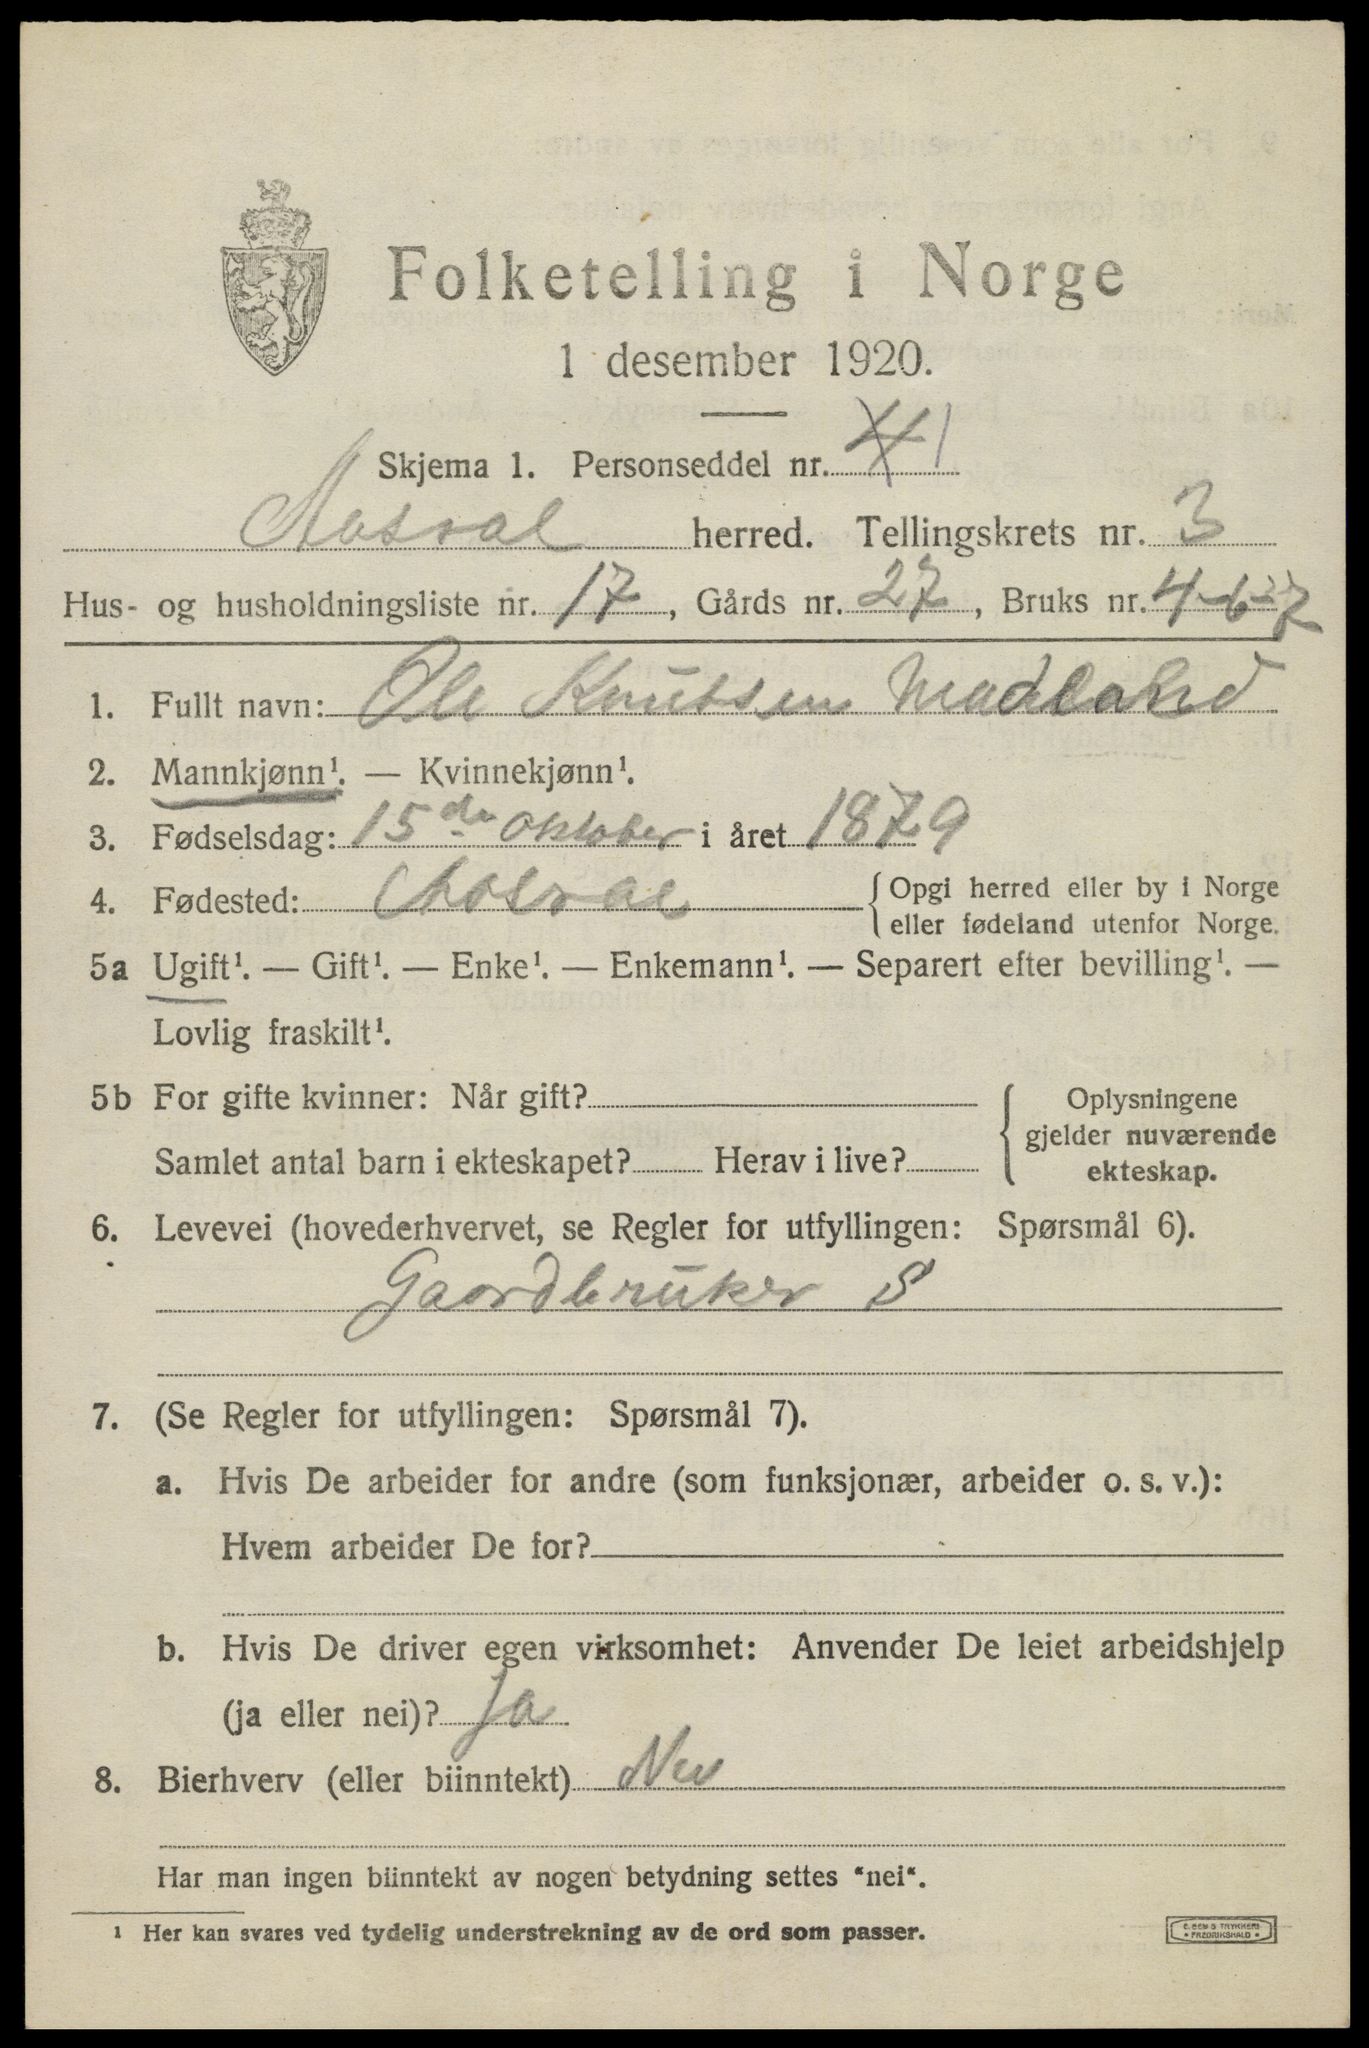 Folketelling i Norge
1 desember 1920.
Skjema 1. Personseddel nr. 4 1
Aasral herred. Tellingskrets nr. 3
Hus- og husholdningsliste nr. 17, Gårds nr. 27, Bruks nr. 4-6-7
1. Fullt navn: Ole Knutsen Madland
2. Mannkjønn¹. — Kvinnekjønn¹.
3. Fødselsdag: 15de oktober i året 1879
4. Fødested: Aasral { Opgi herred eller by i Norge
eller fødeland utenfor Norge.
5a Ugift¹. — Gift¹. — Enke¹. — Enkemann¹. — Separert efter bevilling¹. —
Lovlig fraskilt¹.
5b For gifte kvinner: Når gift?
Samlet antal barn i ekteskapet? Herav i live?
Oplysningene
gjelder nuværende
ekteskap.
6. Levevei (hovederhvervet, se Regler for utfyllingen: Spørsmål 6).
Gaardbruker S
7. (Se Regler for utfyllingen: Spørsmål 7).
a. Hvis De arbeider for andre (som funksjonær, arbeider o. s. v.):
Hvem arbeider De for?
b. Hvis De driver egen virksomhet: Anvender De leiet arbeidshjelp
(ja eller nei)? Ja
8. Bierhverv (eller biinntekt) Nei
Har man ingen biinntekt av nogen betydning settes "nei".
¹ Her kan svares ved tydelig understrekning av de ord som passer.
TRYKKERI
FREDRIKSHALD